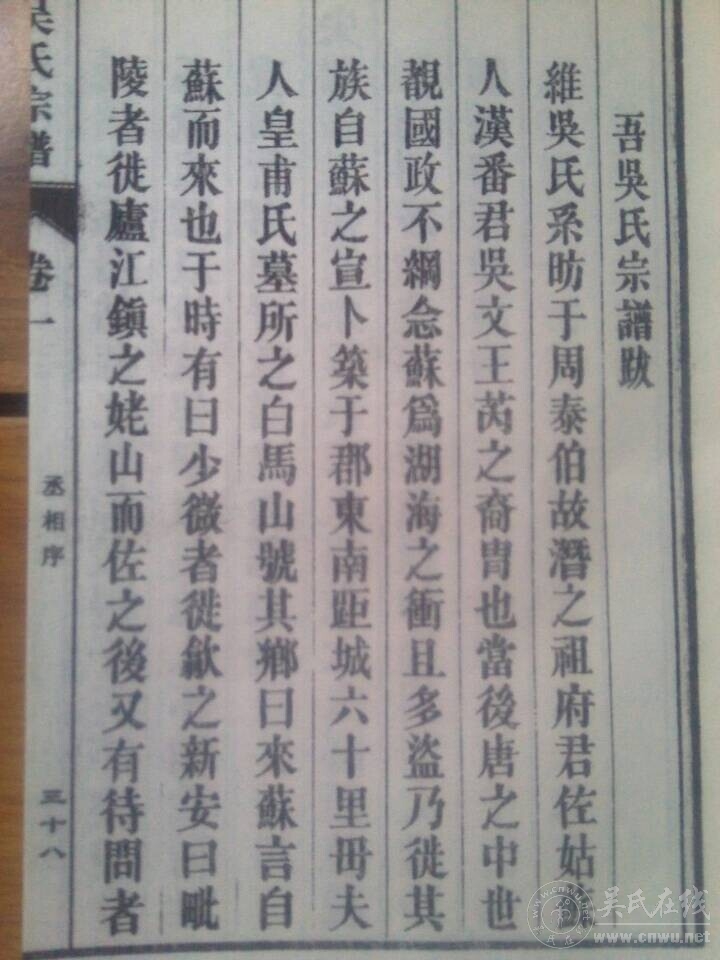 吾吳氏宗譜跋
維吳氏系昉于周泰伯故潛之祖府君佐姑
人漢番君吳文王芮之裔冑也當後唐之中世
覩國政不綱念蘇爲湖海之衝且多盜乃徙其
族自蘇之宣卜築于郡東南距城六十里毌夫
人皇甫氏墓所之白馬山號其鄉曰來蘇言自
蘇而來也于時有曰少微者徙歙之新安曰毗
陵者徙廬江鎮之姥山而佐之後又有待問者
吳氏宗譜
卷一
丞相序
三十八
吴氏在线
www.cnwu.net